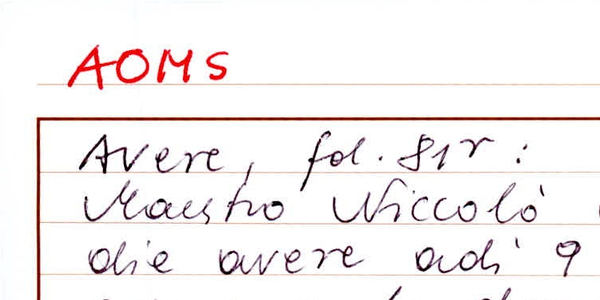 AOMS
Avere, fol. 81r:
Maestro Niccolò
die avere adì 9